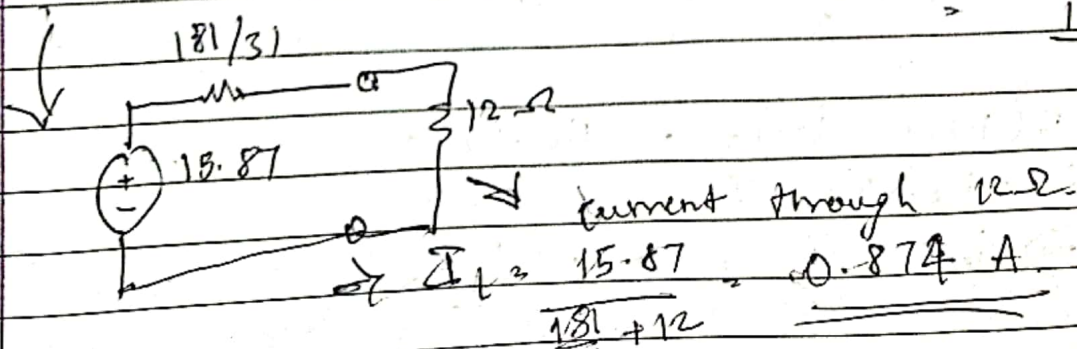 181/31
a
12 Ω
+
15.87
-
current through 12 Ω.
I_L = 15.87 = 0.874 A.
181 + 12